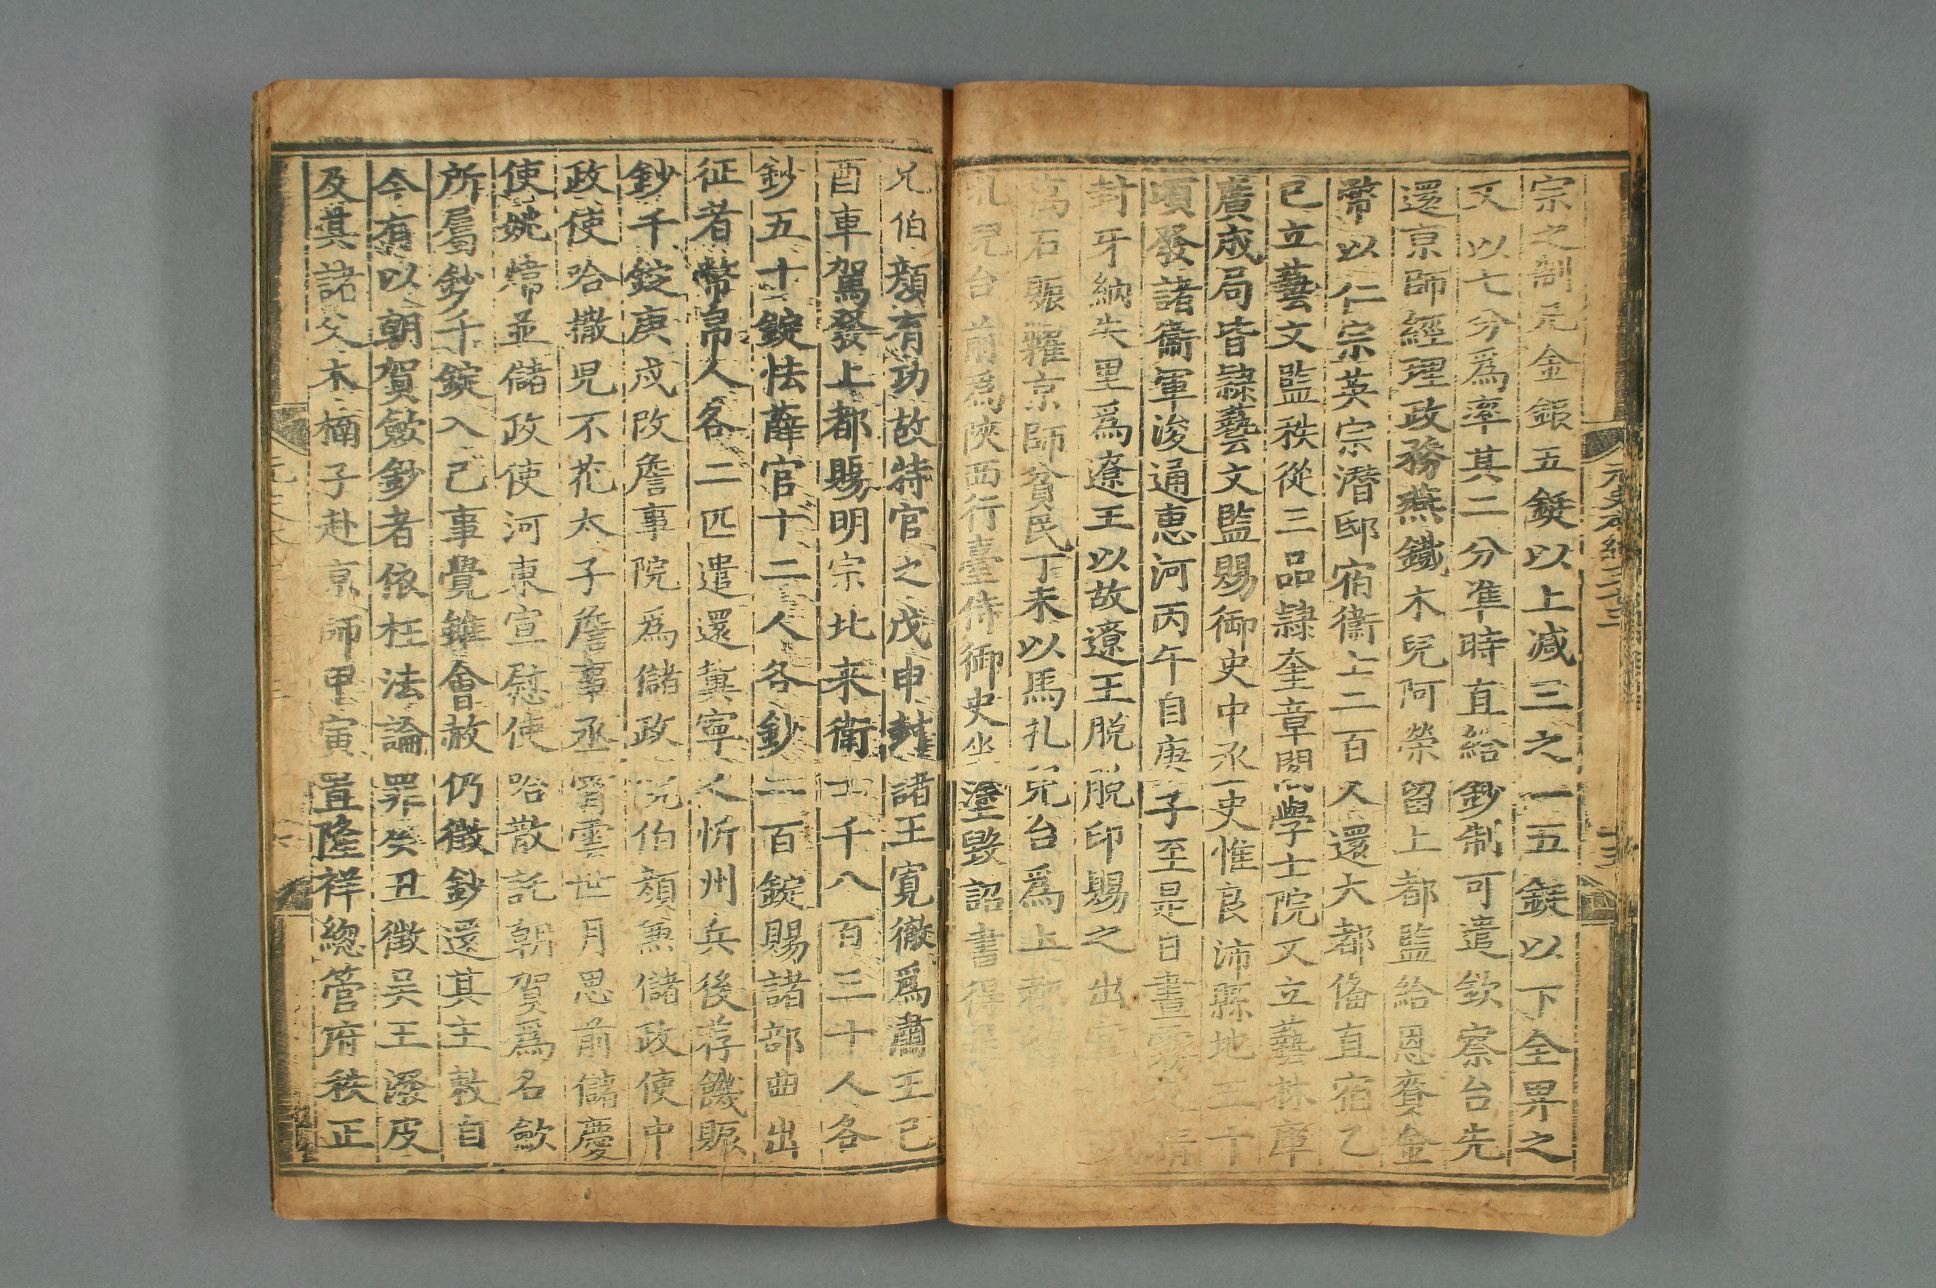 宗之制凡金銀五錠以上减三之一五錠以下全畀之
又以七分爲率其二分准時直給鈔制可遣欽察台先
還京師經理政務燕鐵木兒阿榮留上都監給恩賚金
幣以仁宗英宗潜邸宿衞士二百人還大都俻直宿乙
巳立藝文監秩從三品隷奎章閣學士院又立藝林庫
廣成局皆隷藝文監賜御史中丞史惟良沛縣地二十
頃發諸衞軍浚通惠河丙午自庚子至是日晝霧夕晴
封牙納失里爲遼王以故遼王脱脱印賜之出
萬石賑糶京師貧民丁未以馬扎兒台爲上
扎兒台前爲陜西行臺侍御史坐塗毀詔書得罪
兄伯顔有功故特官之戊申封諸王寛徹爲肅王己
酉車駕發上都賜明宗北来衛士千八百三十人各
鈔五十錠怯薛官十二人各鈔二百錠賜諸部曲出
征者幣帛人各二匹遣還冀寧之忻州兵後荐饑賑
鈔千錠庚戌改詹事院爲儲政院伯顔兼儲政使中
政使哈撒兒不花太子詹事丞霄雲世月思前儲慶
使姚煒並儲政使河東宣慰使哈散託朝賀爲名歛
所屬鈔千錠入己事覺雖會赦仍徴鈔還其主敕自
今有以朝賀歛鈔者依枉法論罪癸丑徴吳王潑皮
及其諸父木楠子赴京師甲寅置隆祥總管府秩正